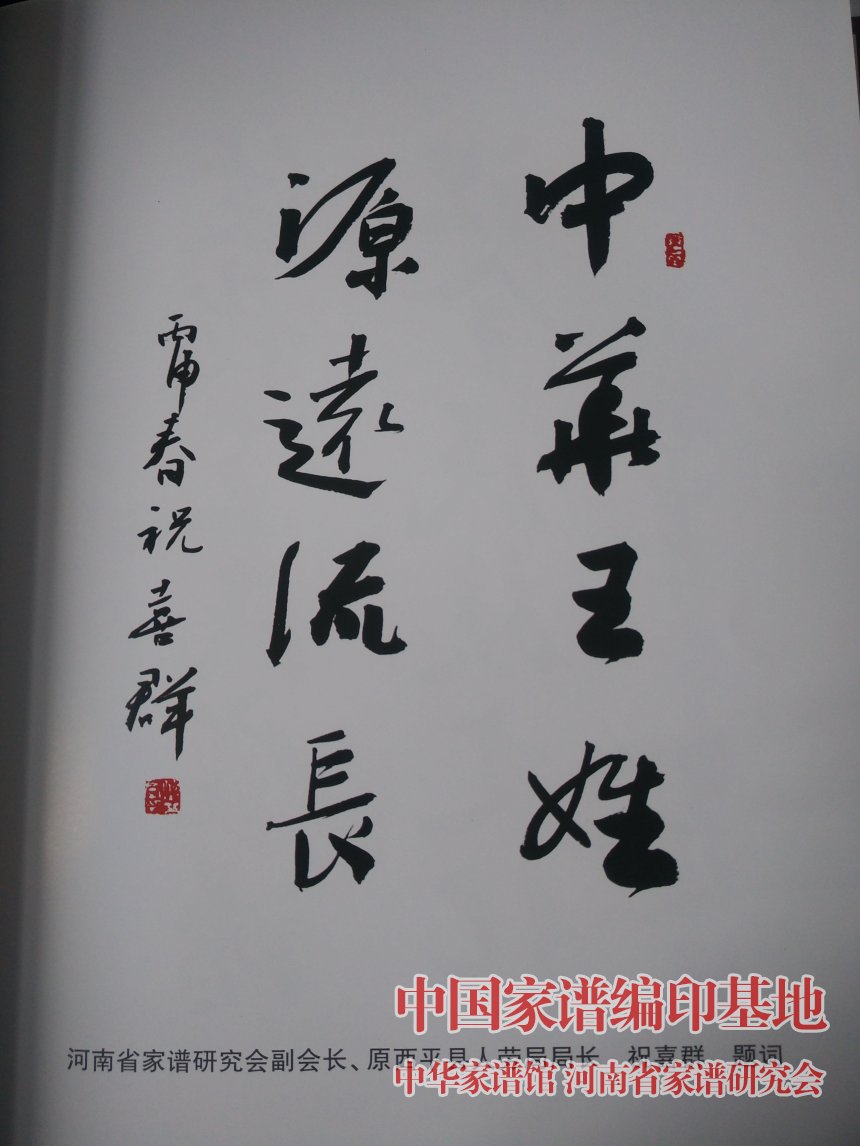 中華王姓
源遠流長
丙申春祝喜群
中国家谱编印基地
河南省家谱研究会副会长、原西平县人劳局局长 祝喜群 题词
中华家谱馆 河南省家谱研究会